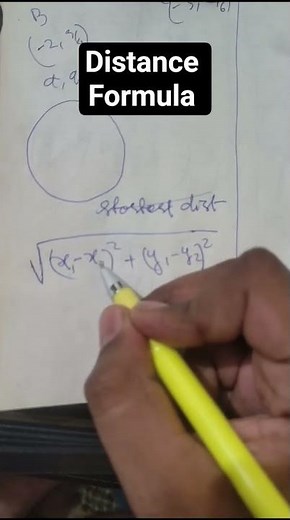 B
Distance
Formula
shortest dist
√(x₁-x₂)² + (y₁-y₂)²